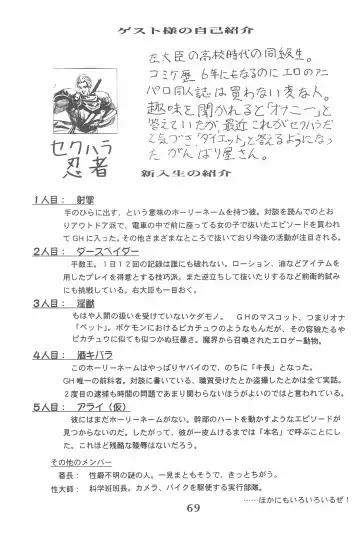 ゲスト様の自己紹介
左大臣の高校時代の同級生。
コミケ歴6年にもなるのにエロのアニ
パロ同人誌は買わない変な人。
趣味を聞かれると「オナニー」と
答えていたが、最近これがセクハラだ
と気づき「ダイエット」と答えるようになっ
たがんばり屋さん。
セクハラ
忍者
新入生の紹介
1人目: 射掌
手のひらに出す、という意味のホーリーネームを持つ彼。対談を読んでのとお
りアウトドア派で、電車の中で前に座ってる女の子で抜いたエピソードを買われ
てGHに入った。その他さまざまなところで抜いており今後の活動が注目される。
2人目: ダースベイダー
手数王。1日12回の記録は誰にも破れない。ローション、油などアイテムを
用したプレイを得意とする技巧派。また逆立ちして抜いたりするなど前衛的試み
にも挑戦している。右大臣も一目おく。
3人目: 淫獣
もはや人間の扱いを受けていないケダモノ。 GHのマスコット、つまりオナ
「ペット」。ポケモンにおけるピカチュウのようなもんだが、その容貌たるや
ピカチュウに似ても似つかぬ狂暴さ。魔界から召喚されたエロゲー動物。
4人目: 酒キバラ
このホーリーネームはやっぱりヤバイので、のちに「キ長」となった。
GH唯一の前科者。対談に書いている、職質受けたとか盗撮したとかは全て実話。
2度目の逮捕も時間の問題であまり関わらないほうがよいのではと言われている。
5人目: アライ(仮)
彼にはまだホーリーネームがない。幹部のハートを動かすようなエピソードが
見つからないのだ。したがって、彼が一皮むけるまでは「本名」で呼ぶことにし
た。これほど残酷な陵辱はないだろう。
その他のメンバー
番長: 性癖不明の謎の人。一見まともそうで、きっとちがう。
性大師: 科学班班長。カメラ、バイクを駆使する実行部隊。
……ほかにもいろいろいるぜ!
69